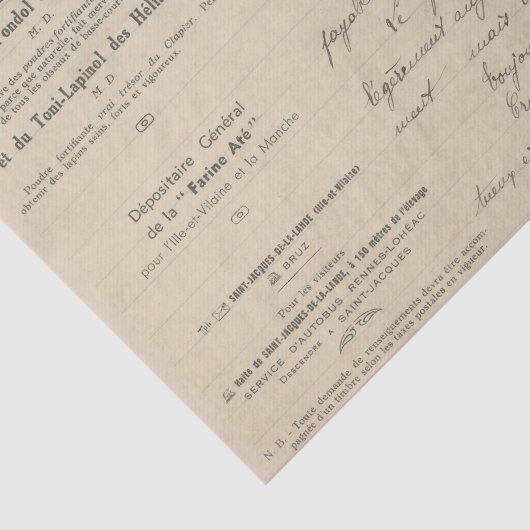 ondol
M. D.
ve des poudres fortifiantes
parce que naturelle, fait merv
de tous les oiseaux de basse-cour.
et du Toni-Lapinol des Hell
M D
Poudre fortifiante vrai trésor du Clapier. Per
obtenir des lapins sains, forts et vigoureux.
Dépositaire Général
de la " Farine Afé "
pour l'Ille-et-Vilaine et la Manche
SAINT-JACQUES-DE-LA-LANDE (Ille-et-Vilaine)
BRUZ
Pour les visiteurs
Halte de SAINT-JACQUES-DE-LA-LANDE, à 150 mètres de l'élevage
SERVICE D'AUTOBUS RENNES-LOHÉAC
DESCENDRE A SAINT-JACQUES
N. B. - Toute demande de renseignements devra être accom-
pagnée d'un timbre selon les taxes postales en vigueur.
payab
de
légèrement aug
ment mais
toujou